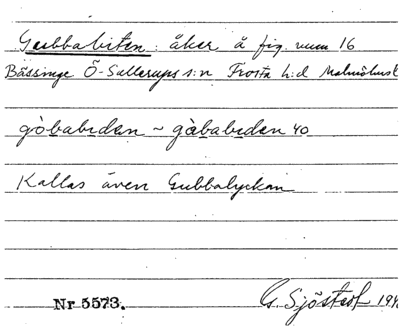 Gubbabiten: åker å fig. num 16
Bässinge Ö-Sallerups s:n Frosta h:d Malmöhusl
gòbabıdan ~ gàbabıdan 40
Kallas även Gubbalyckan
Nr 5573. G. Sjöstedt